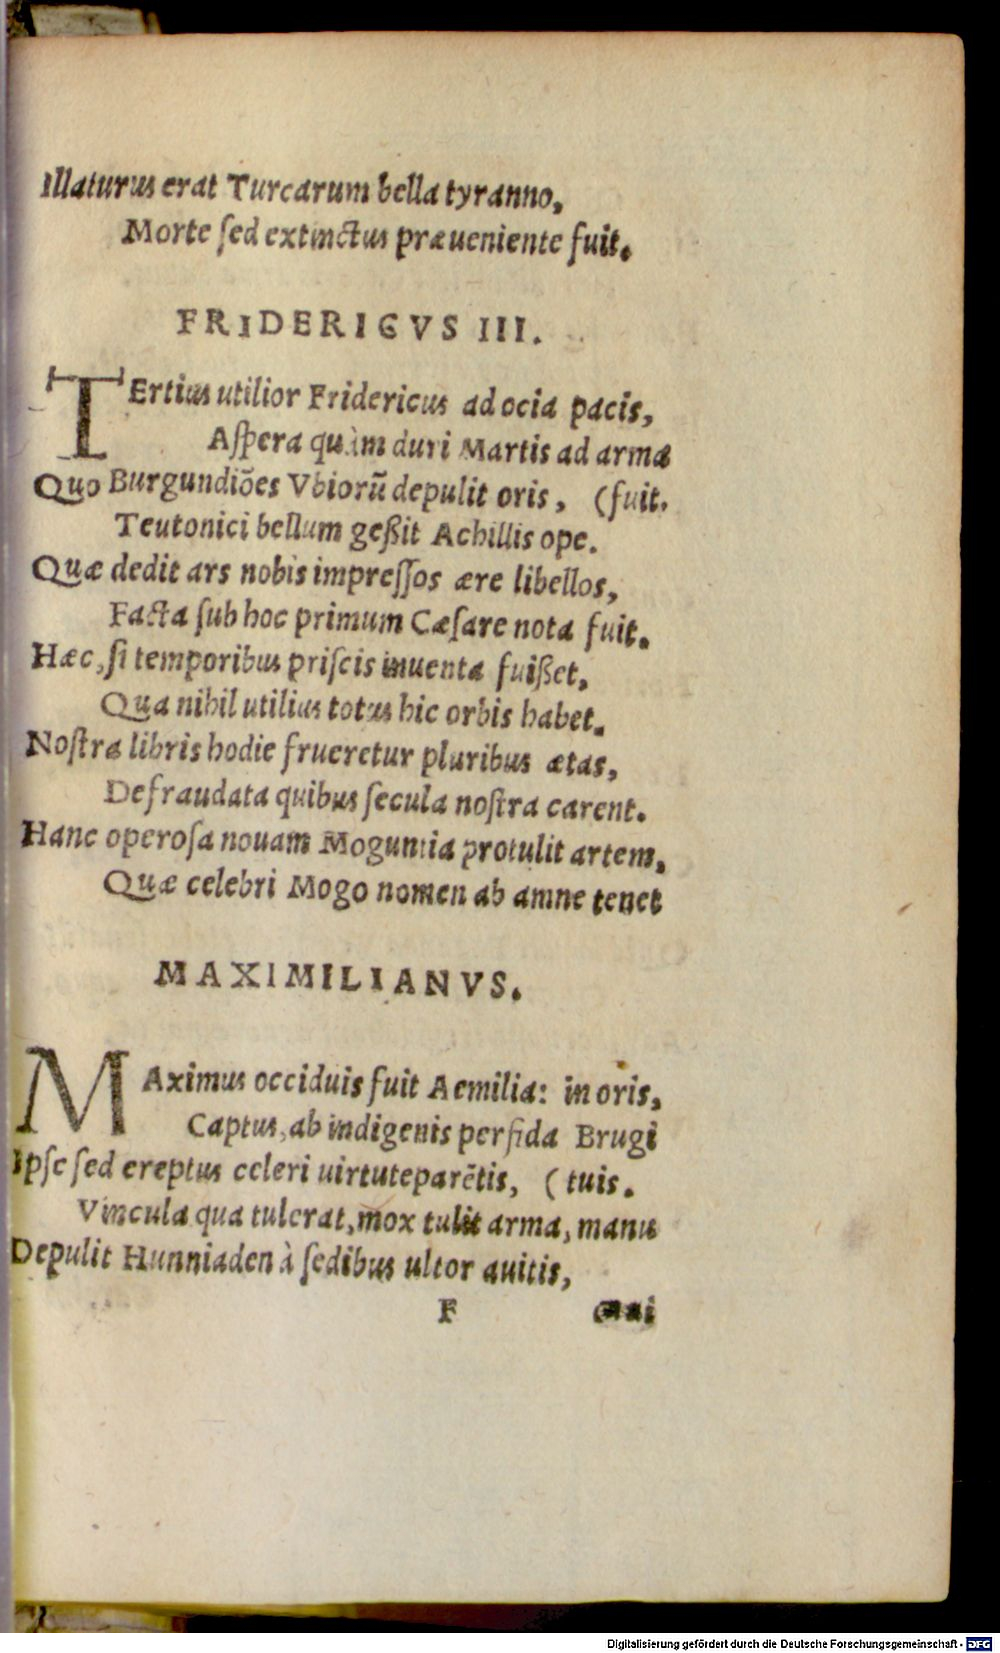 Illaturus erat Turcarum bella tyranno,
Morte ſed extinctus præueniente fuit.
FRIDERICVS III.
TErtius utilior Fridericus ad ocia pacis,
Aſpera quàm duri Martis ad arma
Quo Burgundiões Vbiorũ depulit oris, (fuit.
Teutonici bellum geßit Achillis ope.
Quæ dedit ars nobis impreſſos ære libellos,
Facta ſub hoc primum Cæſare nota fuit.
Hæc, ſi temporibus priſcis inuenta fuißet,
Qua nihil utilius totus hic orbis habet.
Noſtra libris hodie frueretur pluribus ætas,
Defraudata quibus ſecula noſtra carent.
Hanc operoſa nouam Moguntia protulit artem,
Quæ celebri Mogo nomen ab amne tenet
MAXIMILIANVS.
MAximus occiduis fuit Aemilia: in oris,
Captus, ab indigenis perfida Brugi
Ipſe ſed ereptus celeri uirtute parẽtis, (tuis.
Vincula qua tulerat, mox tulit arma, manu
Depulit Hunniaden à ſedibus ultor auitis,
F
Digitalisierung gefördert durch die Deutsche Forschungsgemeinschaft - DFG